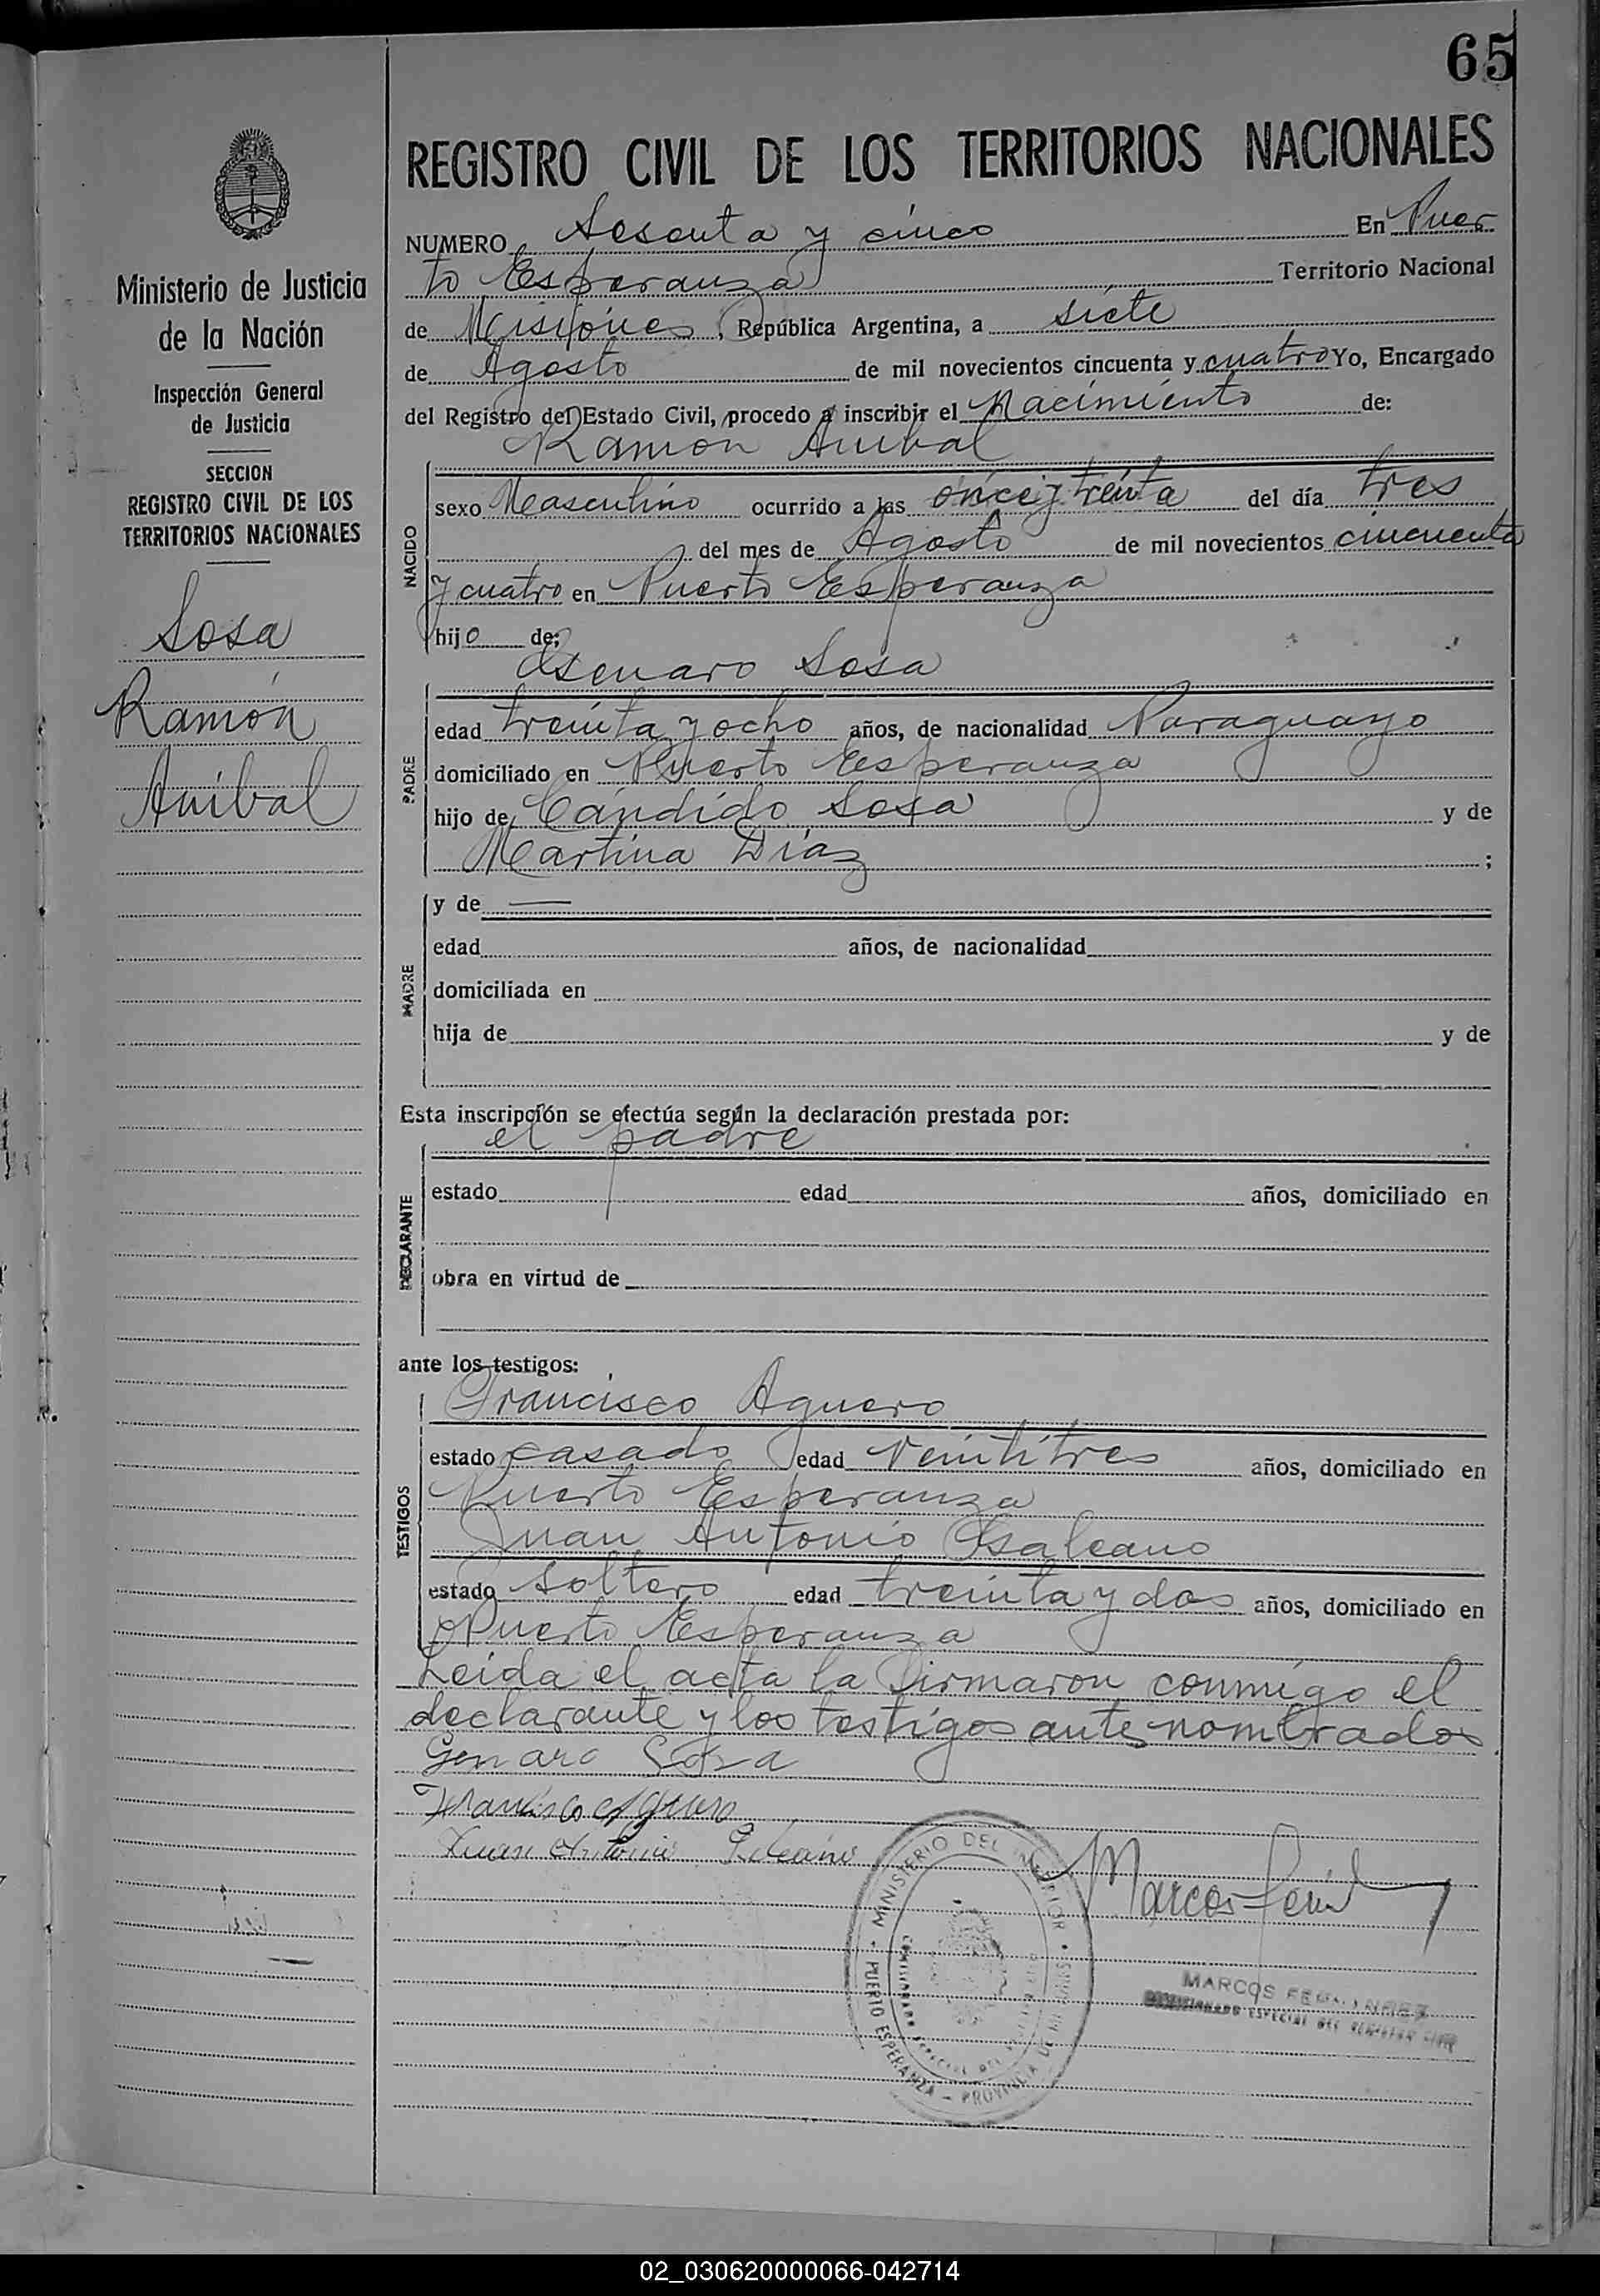 65
Ministerio de Justicia
de la Nación
Inspección General
de Justicia
SECCION
REGISTRO CIVIL DE LOS
TERRITORIOS NACIONALES
Sosa
Ramón
Anibal
REGISTRO CIVIL DE LOS TERRITORIOS NACIONALES
NUMERO Sesenta y cinco En Puer
to Esperanza Territorio Nacional
de Misiones, República Argentina, a siete
de Agosto de mil novecientos cincuenta y cuatro Yo, Encargado
del Registro del Estado Civil, procedo a inscribir el Nacimiento de:
Ramon Anibal
NACIDO
sexo Masculino ocurrido a las once y treinta del día tres
del mes de Agosto de mil novecientos cincuenta
y cuatro en Puerto Esperanza
hijo de:
Genaro Sosa
PADRE
edad treinta y ocho años, de nacionalidad Paraguayo
domiciliado en Puerto Esperanza
hijo de Cándido Sosa y de
Martina Diaz ;
MADRE
y de —
edad años, de nacionalidad
domiciliada en
hija de y de
Esta inscripción se efectúa según la declaración prestada por:
el padre
DECLARANTE
estado edad años, domiciliado en
obra en virtud de
ante los testigos:
Francisco Aguero
TESTIGOS
estado casado edad veintitres años, domiciliado en
Puerto Esperanza
Juan Antonio Galeano
estado soltero edad treinta y dos años, domiciliado en
Puerto Esperanza
Leida el acta la firmaron conmigo el
declarante y los testigos antes nombrados
Genaro Sosa
Francisco Aguero
Juan Antonio Galeano
Marcos
MINISTERIO DEL INTERIOR • PUERTO ESPERANZA — PROVINCIA DE MISIONES
MARCOS
COMISIONADO ESPECIAL DEL REGISTRO CIVIL
02_030620000066-042714